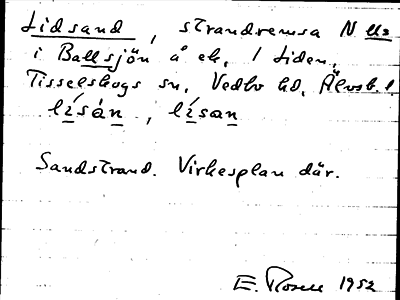 Lidsand, strandremsa N
i Ballsjön å ek. Liden,
Tisselskogs sn, Vedbo hd, Älvsb. l.
lísàn, lísan
Sandstrand. Virkesplan där.
E. Rosell 1952